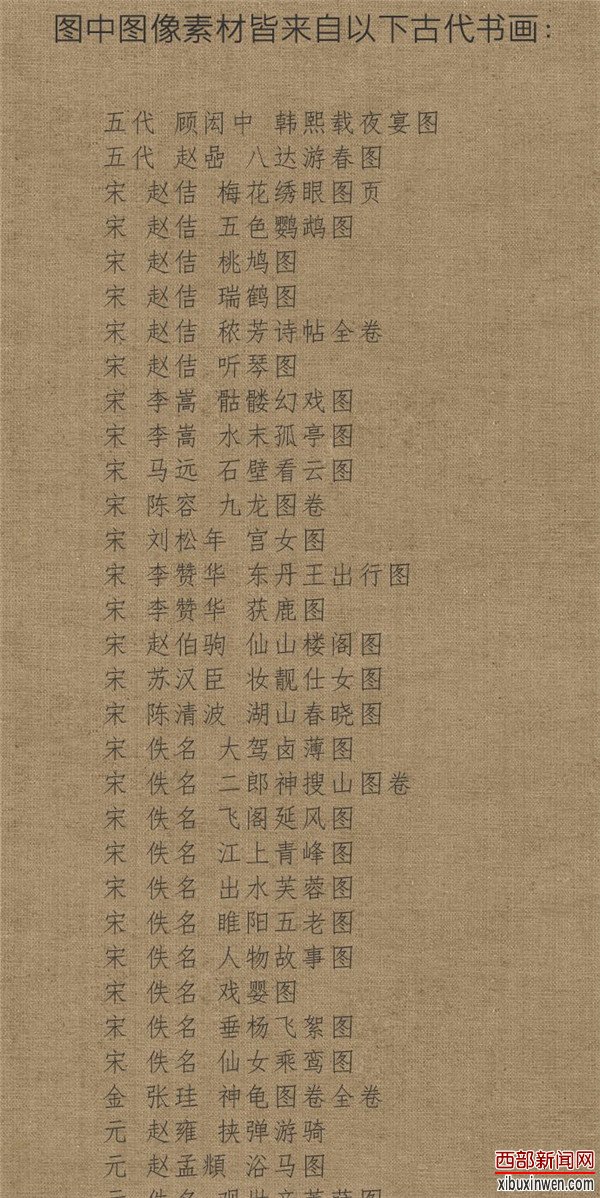 图中图像素材皆来自以下古代书画：
五代 顾闳中 韩熙载夜宴图
五代 赵喦 八达游春图
宋 赵佶 梅花绣眼图页
宋 赵佶 五色鹦鹉图
宋 赵佶 桃鸠图
宋 赵佶 瑞鹤图
宋 赵佶 秾芳诗帖全卷
宋 赵佶 听琴图
宋 李嵩 骷髅幻戏图
宋 李嵩 水末孤亭图
宋 马远 石壁看云图
宋 陈容 九龙图卷
宋 刘松年 宫女图
宋 李赞华 东丹王出行图
宋 李赞华 获鹿图
宋 赵伯驹 仙山楼阁图
宋 苏汉臣 妆靓仕女图
宋 陈清波 湖山春晓图
宋 佚名 大驾卤薄图
宋 佚名 二郎神搜山图卷
宋 佚名 飞阁延风图
宋 佚名 江上青峰图
宋 佚名 出水芙蓉图
宋 佚名 睢阳五老图
宋 佚名 人物故事图
宋 佚名 戏婴图
宋 佚名 垂杨飞絮图
宋 佚名 仙女乘鸾图
金 张珪 神龟图卷全卷
元 赵雍 挟弹游骑
元 赵孟頫 浴马图
西部新闻网
xibuxinwen.com